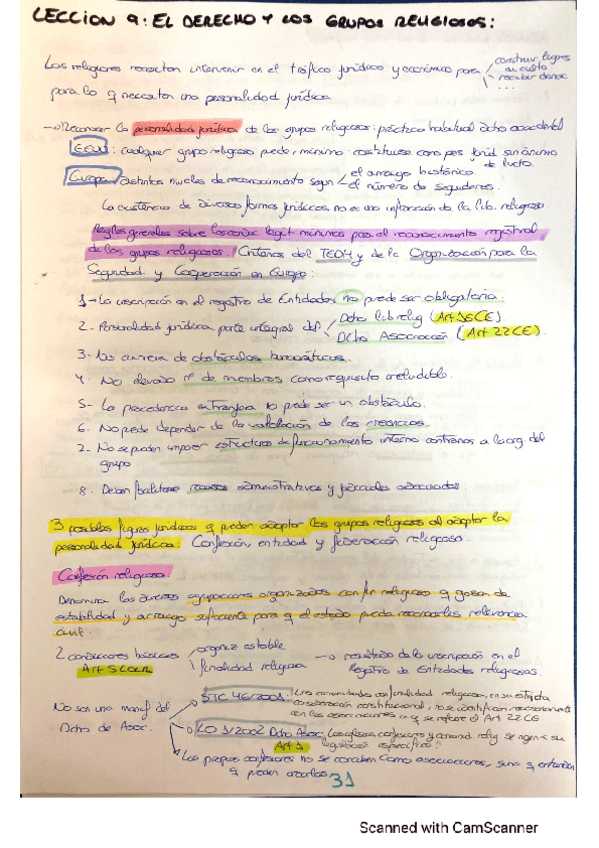 LECCION 9: EL DERECHO Y LOS GRUPOS RELIGIOSOS:
Las religiones necesitan intervenir en el tráfico jurídico y económico para
construir lugares
recaudar donac
...
para lo q necesitan una personalidad jurídica
→ Reconocer la personalidad jurídica de los grupos religiosos: práctica habitual dcho occidental
EEUU: cualquier grupo religioso puede, mínimo constituirse como pers. juríd sin ánimo
de lucro.
Europa distintos niveles de reconocimiento según
el arraigo histórico.
el número de seguidores.
La existencia de diversas formas jurídicas no es una infracción de la lib. religiosa
Reglas generales sobre legit mínimas para el reconocimiento registral
de los grupos religiosos. Criterios del TEDH y de la Organización para la
Seguridad y Cooperación en Europa:
1- La inscripción en el registro de Entidades no puede ser obligatoria.
2- Personalidad jurídica parte integral del
Dcho lib relig (Art 16 CE)
Dcho Asociación (Art 22 CE).
3- obstáculos burocráticos.
4- No elevado nº de miembros como requisito ineludible.
5- La procedencia extranjera no puede ser un obstáculo.
6- No puede depender de la validación de las creencias.
7- No se pueden imponer estructuras de funcionamiento interno contrarias a la org del
grupo
8- Deben facilitarse recursos administrativos y judiciales adecuados.
3 posibles figuras jurídicas q pueden adoptar los grupos religiosos al adoptar la
personalidad jurídica: Confesión, entidad y federación religiosa.
Confesión religiosa:
Denomina las diversas agrupaciones organizadas con fin religioso q gozan de
estabilidad y arraigo suficiente para q el estado pueda reconocerles relevancia
civil
2 condiciones básicas
Art 5 LOLR
organiz estable
finalidad religiosa
→ resultado de la inscripción en el
Registro de Entidades religiosas.
No son una manif del
Dcho de Asoc.
STC 46/2001: Las comunidades con finalidad religiosa, en su estricta
consideración constitucional, no se identifican necesariamente
con las asociaciones a q se refiere el Art 22 CE
LO 1/2002 Dcho Asoc
Art 1
legislación específica"
Las propias confesiones no se conciben como asociaciones, sino q entienden
q pueden crearlas
31
Scanned with CamScanner